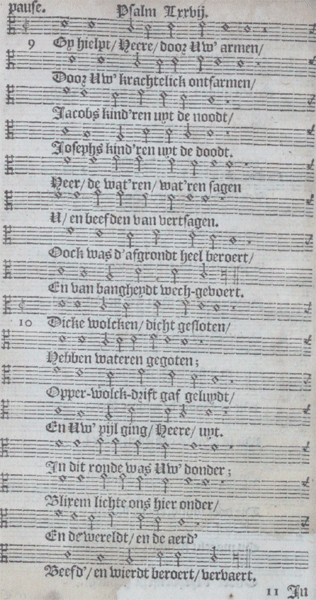 pause. Psalm Lxxvij.
9 Gy hielpt/ Heere/ door Uw' armen/
Door Uw' krachtelick ontfarmen/
Jacobs kind'ren uyt de noodt/
Josephs kind'ren uyt de doodt.
Heer/ de wat'ren/ wat'ren sagen
U/ en beefden van vertsagen.
Oock was d'afgrondt heel beroert/
En van bangheydt wech-gevoert.
10 Dicke wolcken/ dicht gesloten/
Hebben wateren gegoten;
Opper-wolck-drift gaf geluydt/
En Uw' pijl ging/ Heere/ uyt.
In dit ronde was Uw' donder;
Blixem lichte ons hier onder/
En de wereldt/ en de aerd'
Beefd'/ en wierdt beroert/ vervaert.
11 In